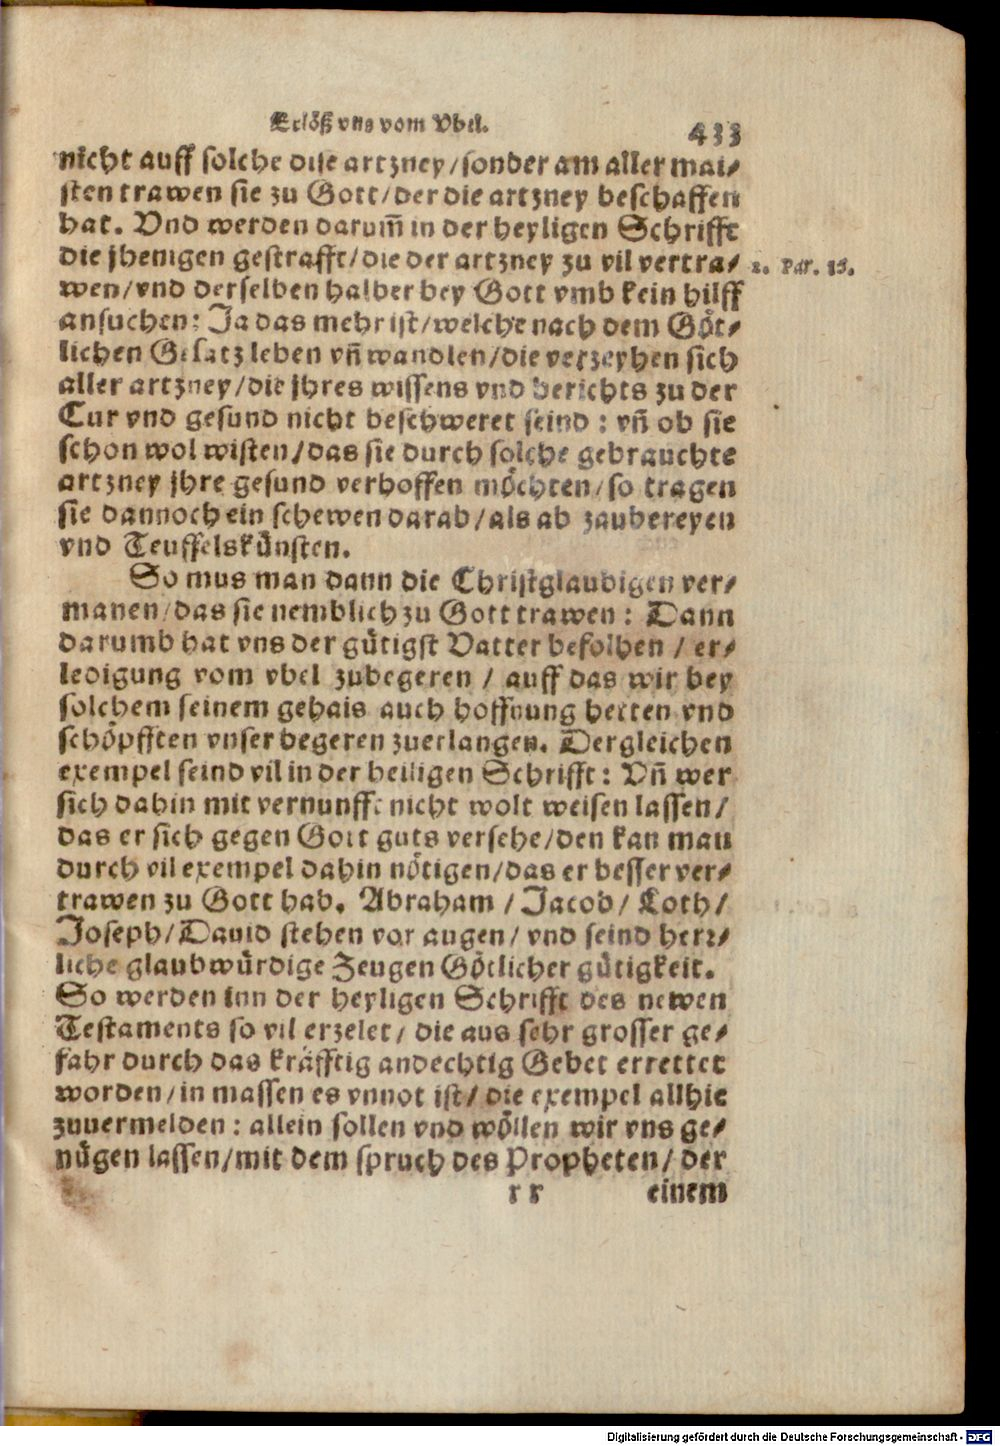 Erlöß vns vom Vbel.
433
nicht auff solche dise artzney/sonder am aller mai⸗
sten trawen sie zu Gott/der die artzney beschaffen
hat. Vnd werden darum̃ in der heyligen Schrifft
die jhenigen gestrafft/die der artzney zu vil vertra⸗
2. Par. 15.
wen/vnd derselben halber bey Gott vmb kein hilff
ansuchen: Ja das mehr ist/welche nach dem Göt⸗
lichen Gesatz leben vñ wandlen/die verzeyhen sich
aller artzney/die jhres wissens vnd berichts zu der
Cur vnd gesund nicht beschweret seind: vñ ob sie
schon wol wisten/das sie durch solche gebrauchte
artzney jhre gesund verhoffen möchten/so tragen
sie dannoch ein schewen darab/als ab zaubereyen
vnd Teuffelskünsten.
So mus man dann die Christglaubigen ver⸗
manen/das sie nemblich zu Gott trawen: Dann
darumb hat vns der gütigst Vatter befolhen/er⸗
ledigung vom vbel zubegeren/auff das wir bey
solchem seinem gehais auch hoffnung hetten vnd
schöpfften vnser begeren zuerlangen. Dergleichen
exempel seind vil in der heiligen Schrifft: Vñ wer
sich dahin mit vernunfft nicht wolt weisen lassen/
das er sich gegen Gott guts versehe/den kan man
durch vil exempel dahin nötigen/das er besser ver⸗
trawen zu Gott hab. Abraham/Jacob/Loth/
Joseph/Dauid stehen vor augen/vnd seind herr⸗
liche glaubwürdige Zeugen Götlicher gütigkeit.
So werden inn der heyligen Schrifft des newen
Testaments so vil erzelet/die aus sehr grosser ge⸗
fahr durch das kräfftig andechtig Gebet errettet
worden/in massen es vnnot ist/die exempel allhie
zuuermelden: allein sollen vnd wöllen wir vns ge⸗
nügen lassen/mit dem spruch des Propheten/der
rr einem
Digitalisierung gefördert durch die Deutsche Forschungsgemeinschaft - DFG